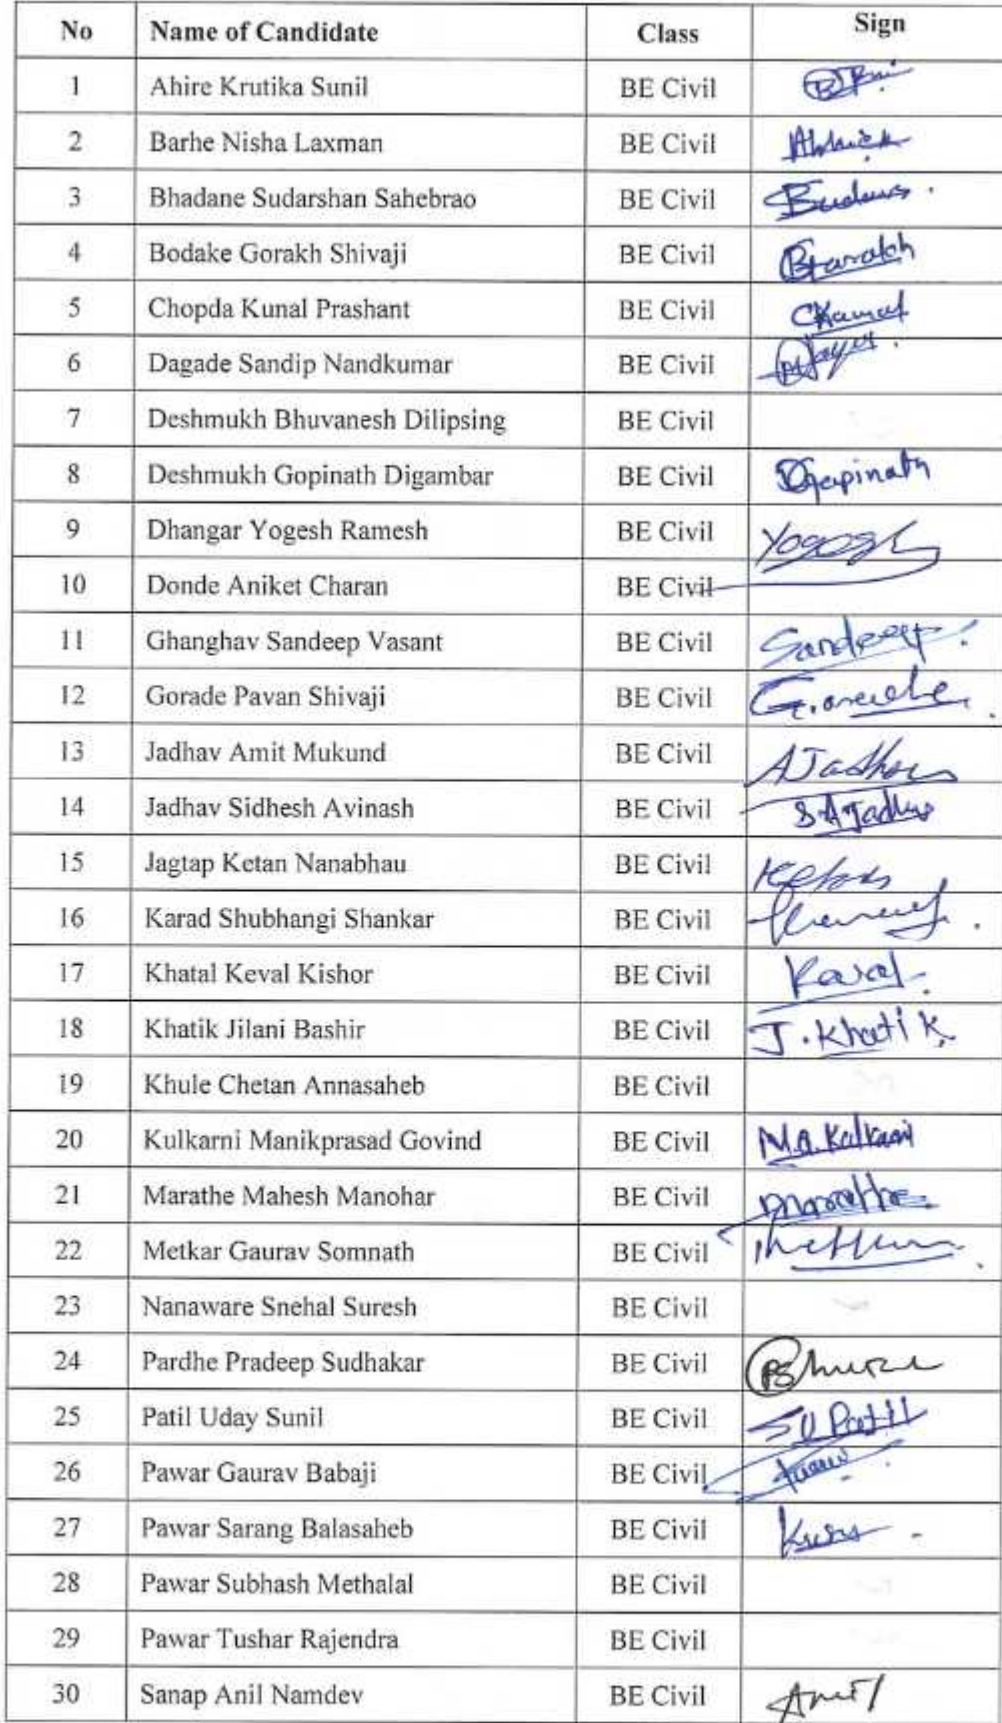 No Name of Candidate Class Sign
1 Ahire Krutika Sunil BE Civil
2 Barhe Nisha Laxman BE Civil
3 Bhadane Sudarshan Sahebrao BE Civil
4 Bodake Gorakh Shivaji BE Civil
5 Chopda Kunal Prashant BE Civil
6 Dagade Sandip Nandkumar BE Civil
7 Deshmukh Bhuvanesh Dilipsing BE Civil
8 Deshmukh Gopinath Digambar BE Civil
9 Dhangar Yogesh Ramesh BE Civil
10 Donde Aniket Charan BE Civil
11 Ghanghav Sandeep Vasant BE Civil Sandeep
12 Gorade Pavan Shivaji BE Civil
13 Jadhav Amit Mukund BE Civil
14 Jadhav Sidhesh Avinash BE Civil
15 Jagtap Ketan Nanabhau BE Civil
16 Karad Shubhangi Shankar BE Civil
17 Khatal Keval Kishor BE Civil
18 Khatik Jilani Bashir BE Civil J. Khatik
19 Khule Chetan Annasaheb BE Civil
20 Kulkarni Manikprasad Govind BE Civil
21 Marathe Mahesh Manohar BE Civil
22 Metkar Gaurav Somnath BE Civil
23 Nanaware Snehal Suresh BE Civil
24 Pardhe Pradeep Sudhakar BE Civil
25 Patil Uday Sunil BE Civil
26 Pawar Gaurav Babaji BE Civil
27 Pawar Sarang Balasaheb BE Civil
28 Pawar Subhash Methalal BE Civil
29 Pawar Tushar Rajendra BE Civil
30 Sanap Anil Namdev BE Civil